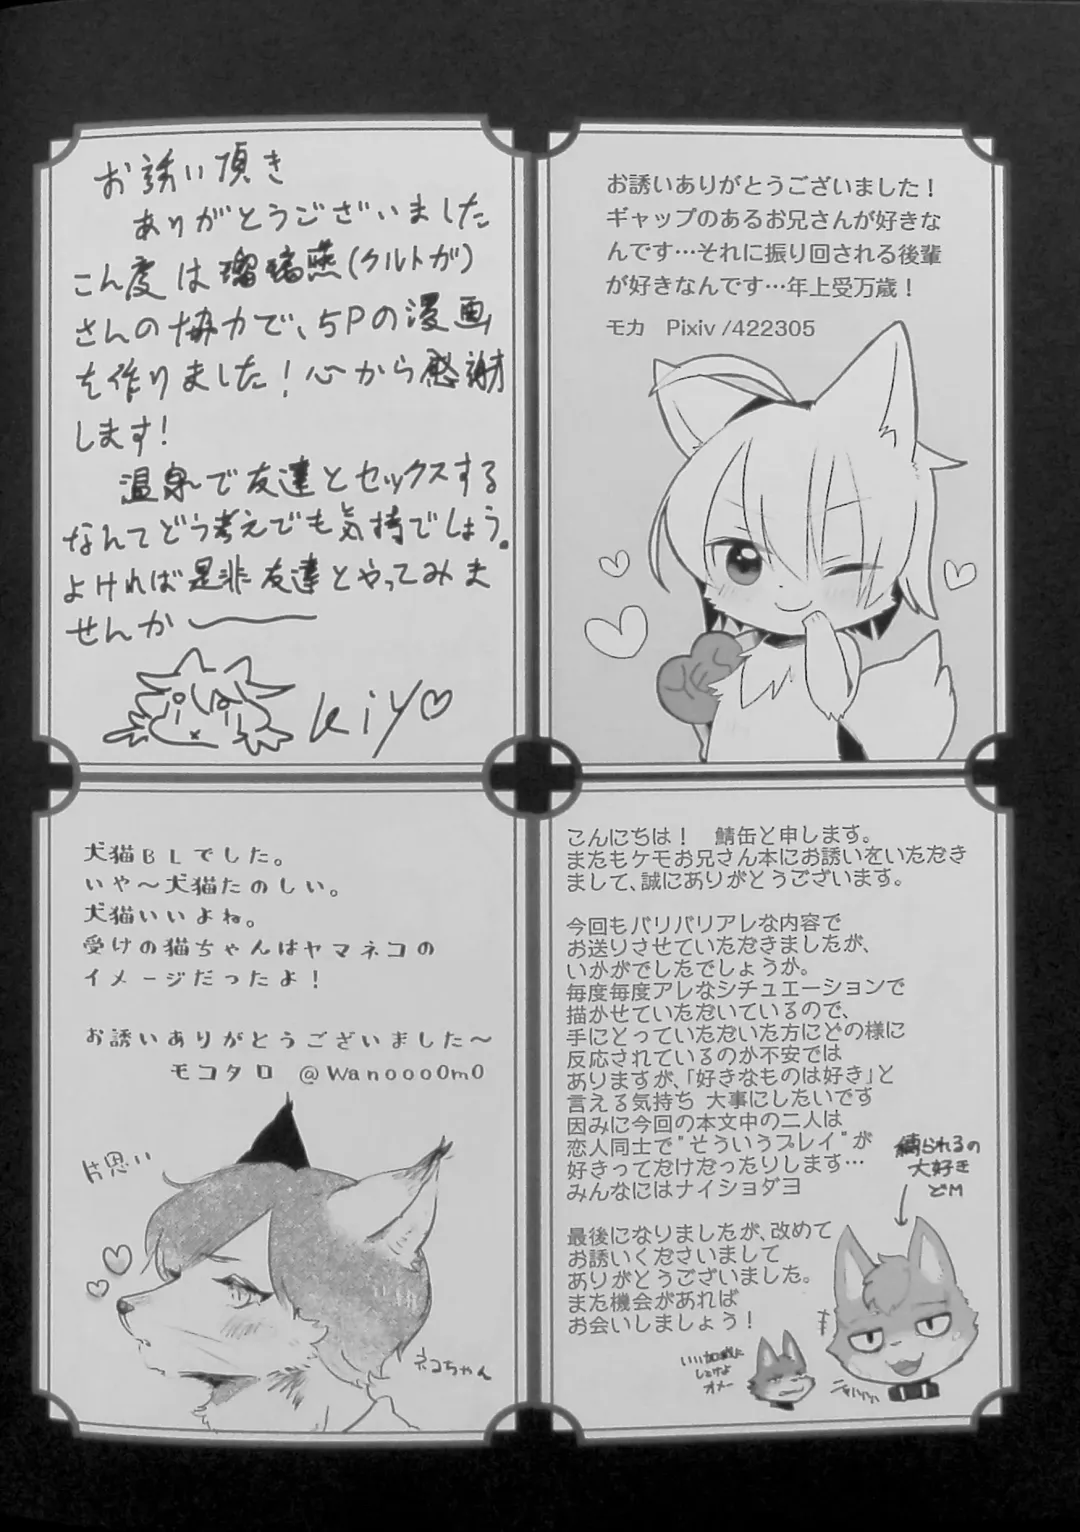 お誘い頂き
ありがとうございました
こん度は瑠璃燕(クルトガ)
さんの協力で、5Pの漫画
を作りました!心から感謝
します!
温泉で友達とセックスする
なんてどう考えでも気持でしょう。
よければ是非友達とやってみま
せんか〜
kiy♡
お誘いありがとうございました!
ギャップのあるお兄さんが好きな
んです…それに振り回される後輩
が好きなんです…年上受万歳!
モカ Pixiv /422305
犬猫BLでした。
いや〜犬猫たのしい。
犬猫いいよね。
受けの猫ちゃんはヤマネコの
イメージだったよ!
お誘いありがとうございました〜
モコタロ @Wanooo0m0
片思い
ネコちゃん
こんにちは! 鯖缶と申します。
またもケモお兄さん本にお誘いをいただき
まして、誠にありがとうございます。
今回もバリバリアレな内容で
お送りさせていただきましたが、
いかがでしたでしょうか。
毎度毎度アレなシチュエーションで
描かせていただいているので、
手にとっていただいた方にどの様に
反応されているのか不安では
ありますが、「好きなものは好き」と
言える気持ち 大事にしたいです
因みに今回の本文中の二人は
恋人同士で"そういうプレイ"が
好きってだけだったりします…
みんなにはナイショダヨ
縛られるの
大好き
どM
最後になりましたが、改めて
お誘いくださいまして
ありがとうございました。
また機会があれば
お会いしましょう!
いい加減に
しとけよ
オメー